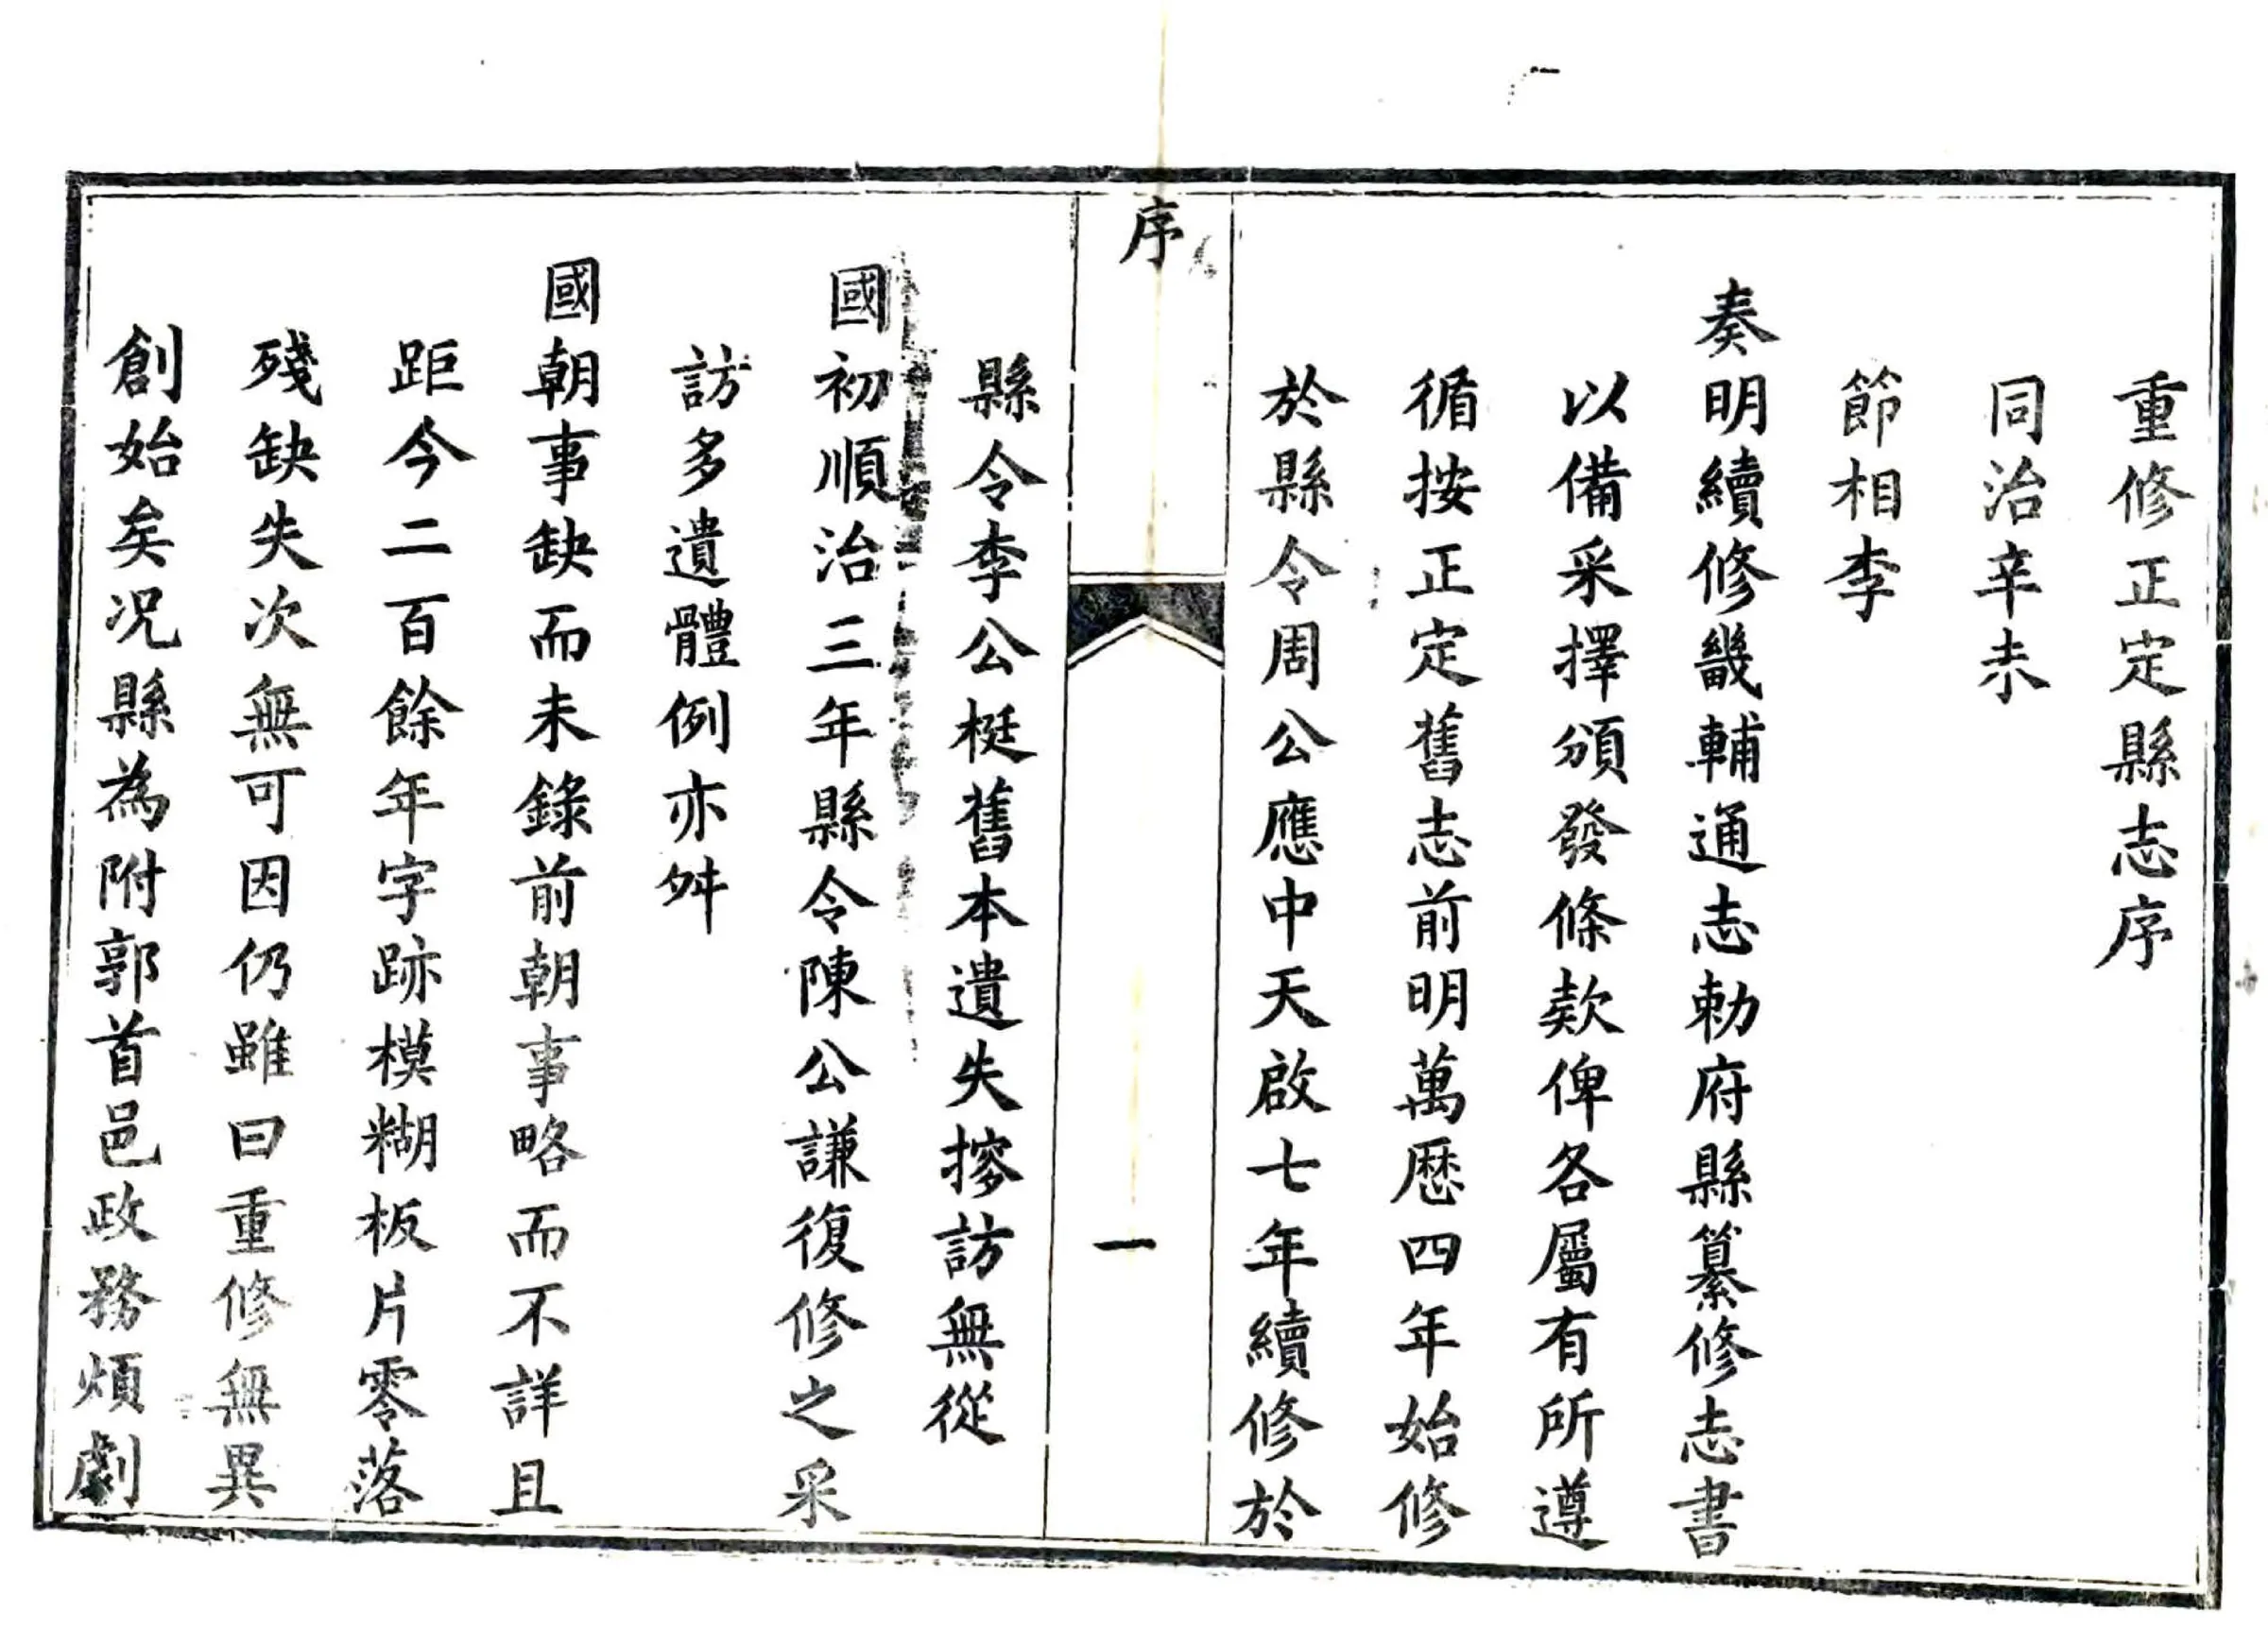 重修正定縣志序
同治辛未
節相李
奏明續修畿輔通志勅府縣纂修志書
以備采擇頒發條欵俾各屬有所遵
循按正定舊志前明萬歷四年始修
於縣令周公應中天啟七年續修於
序
一
縣令李公梃舊本遺失摉訪無從
國初順治三年縣令陳公謙復修之采
訪多遺體例亦舛
國朝事缺而未錄前朝事略而不詳且
距今二百餘年字跡模糊板片零落
殘缺失次無可因仍雖曰重修無異
創始矣况縣為附郭首邑政務煩劇